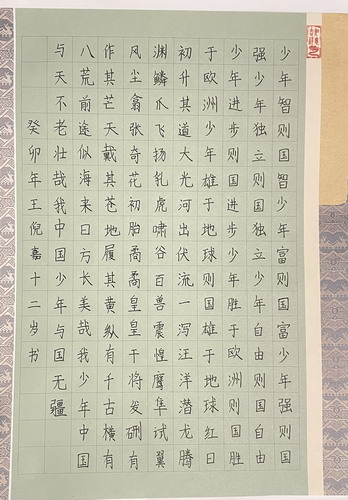 少年智则国智少年富则国富少年强则国
强少年独立则国独立少年自由则国自由
少年进步则国进步少年胜于欧洲则国胜
于欧洲少年雄于地球则国雄于地球红日
初升其道大光河出伏流一泻汪洋潜龙腾
渊鳞爪飞扬乳虎啸谷百兽震惶鹰隼试翼
风尘翕张奇花初胎矞矞皇皇干将发硎有
作其芒天戴其苍地履其黄纵有千古横有
八荒前途似海来日方长美哉我少年中国
与天不老壮哉我中国少年与国无疆
癸卯年王倪嘉十二岁书